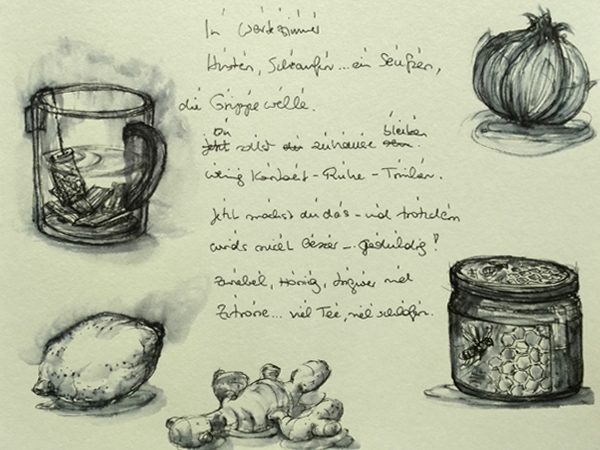 Im Wartezimmer
Husten, Schnaufen... ein Seufzen,
die Grippewelle.
Du bleiben
jetzt sollst zuhause
wenig Kontakt - Ruhe - Trinken.
Jetzt machst du das - und trotzdem
wirds nicht besser - geduldig!
Zwiebel, Honig, Ingwer und
Zitrone... viel Tee, viel schlafen.